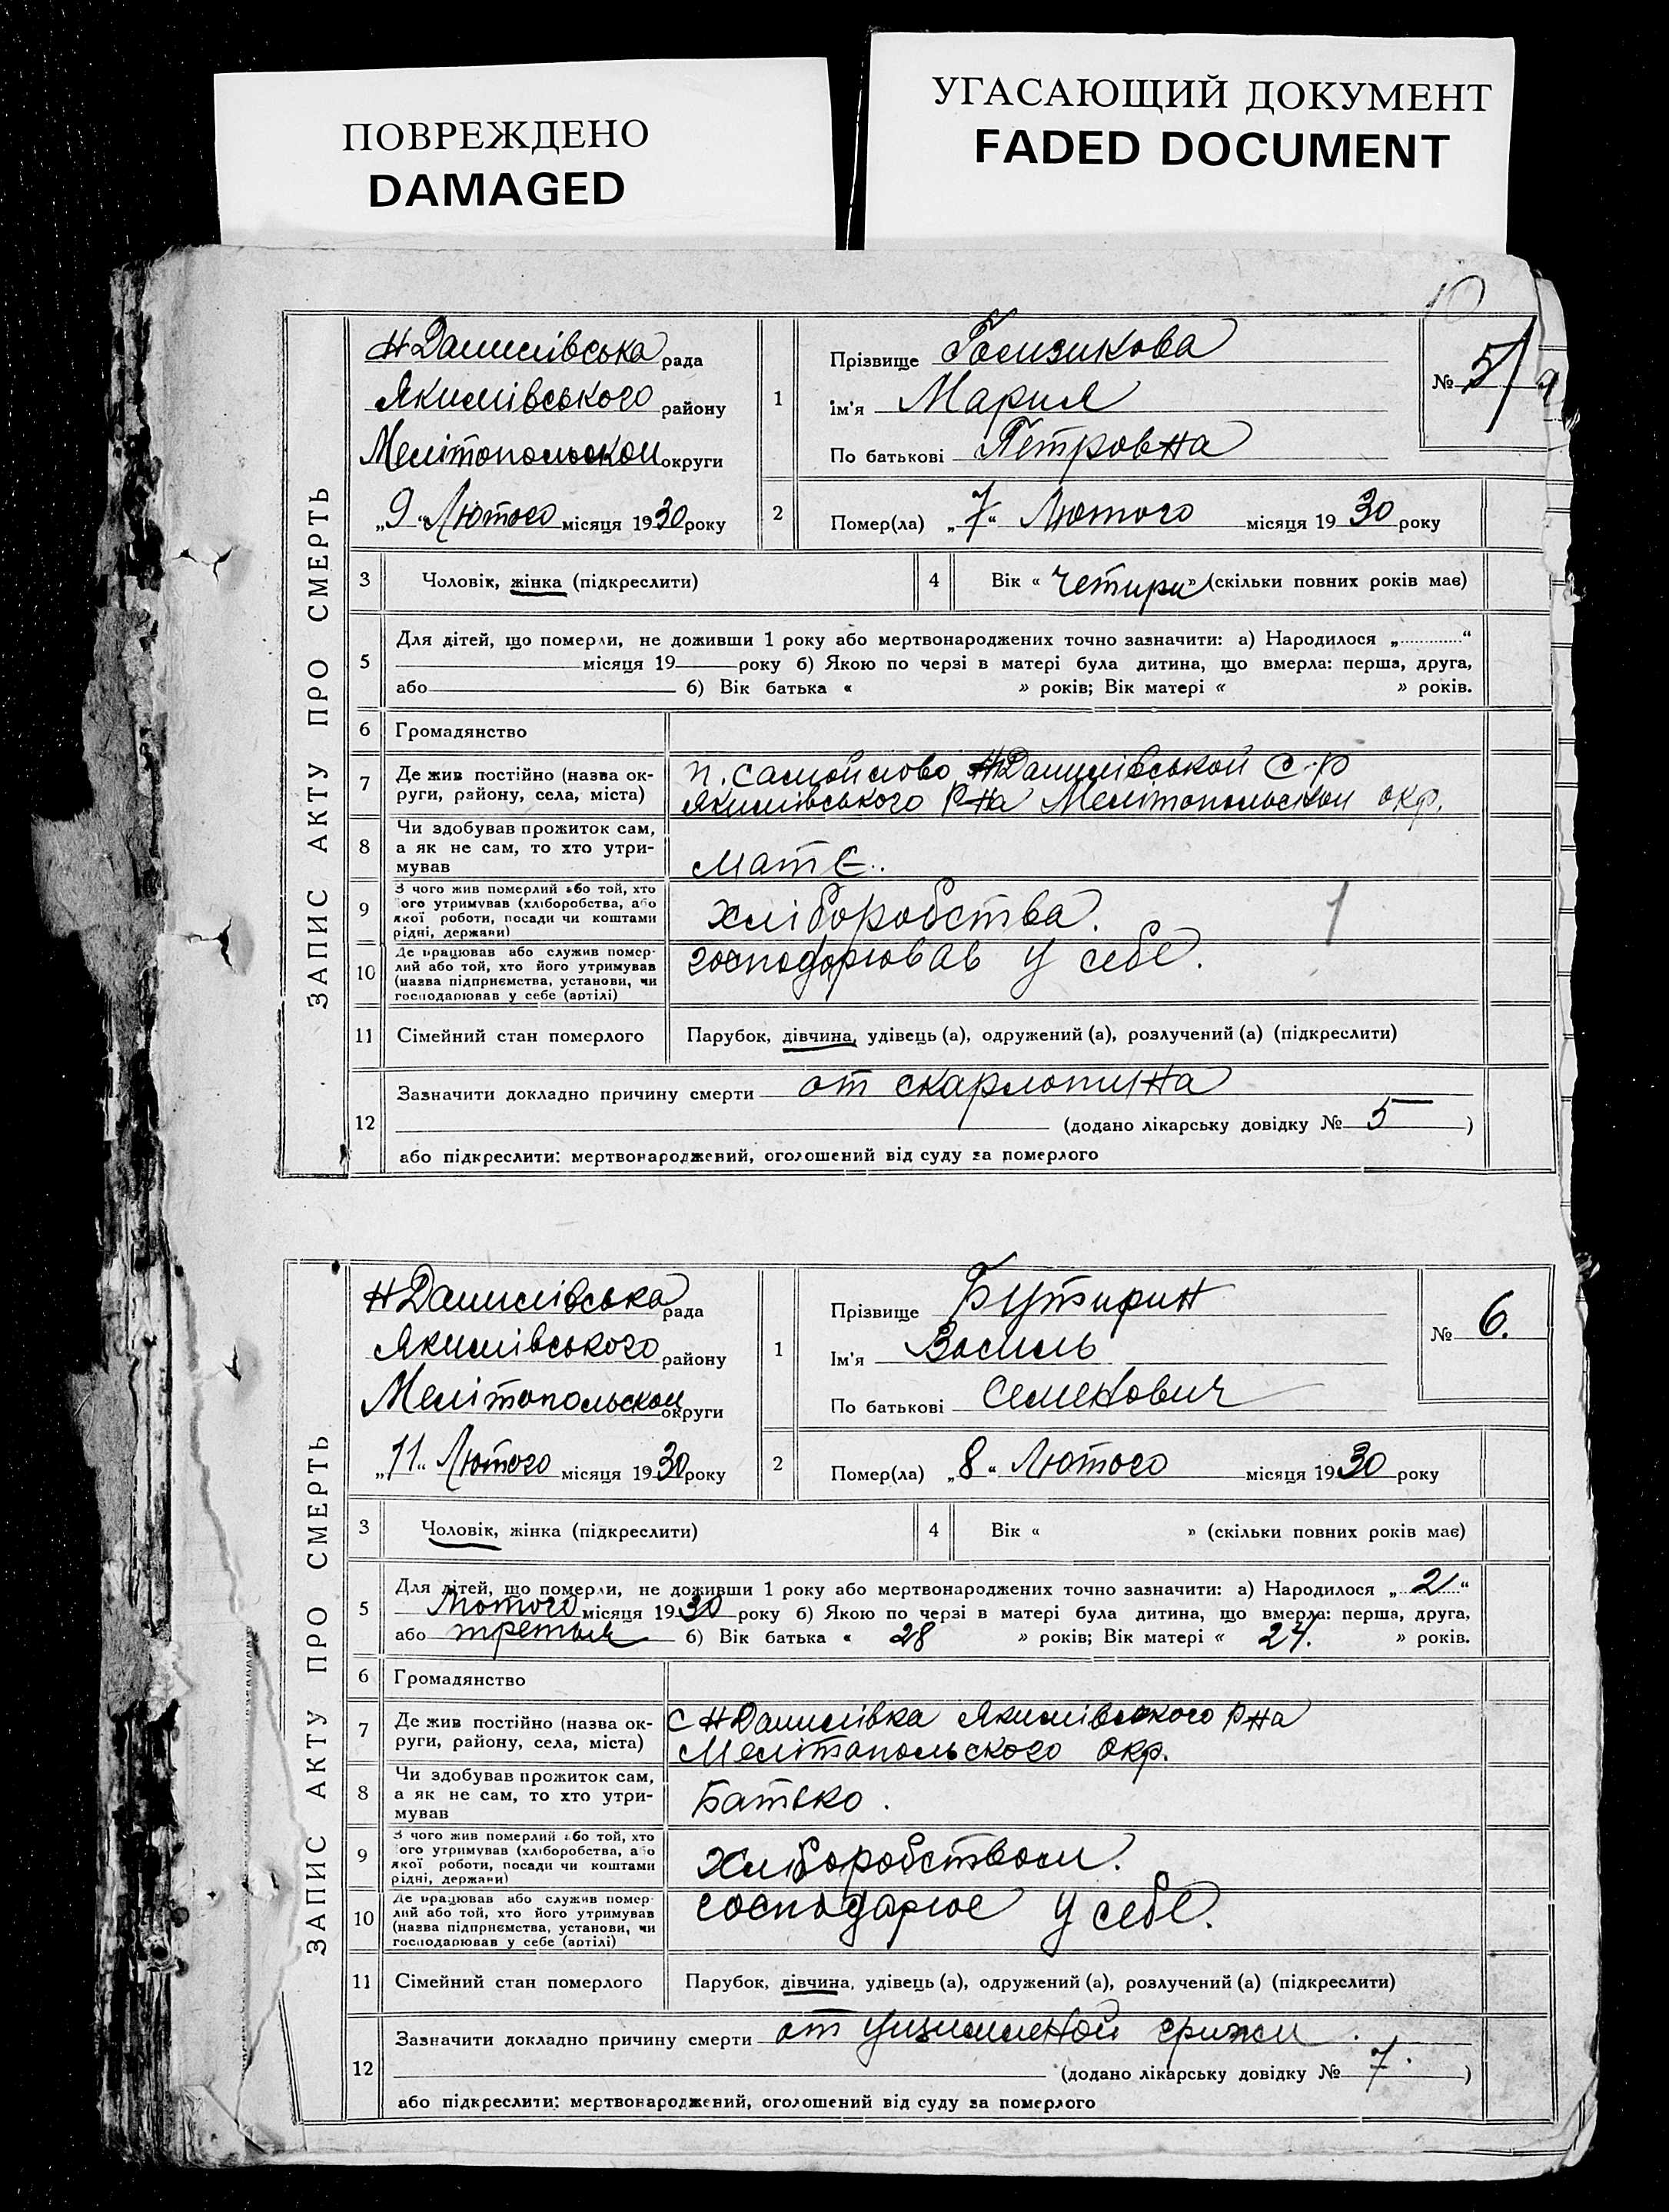 ПОВРЕЖДЕНО
DAMAGED
УГАСАЮЩИЙ ДОКУМЕНТ
FADED DOCUMENT
ЗАПИС АКТУ ПРО СМЕРТЬ
Н Данилівська рада
Якимівського району
Мелітопольскои округи
„9“ Лютого місяця 1930 року
1
Прізвище
Імʼя Мария
По батькові Петровна
№ 5
2
Помер(ла) „7“ Лютого місяця 1930 року
3 Чоловік, жінка (підкреслити)
4 Вік « Четири » (скільки повних років має)
5
Для дітей, що померли, не доживши 1 року або мертвонароджених точно зазначити: а) Народилося „ “
місяця 19 року б) Якою по черзі в матері була дитина, що вмерла: перша, друга,
або б) Вік батька « » років; Вік матері « » років.
6 Громадянство
7
Де жив постійно (назва ок-
руги, району, села, міста)
п. Самойлово Н Данилівськой С.р
Якимівського Р-на Мелітопольскои окр.
8
Чи здобував прожиток сам,
а як не сам, то хто утри-
мував
Мате.
9
З чого жив померлий або той, хто
ого утримував (хліборобства, або
якої роботи, посади чи коштами
рідні, держави)
Хліборобства.
10
Де працював або служив помер-
лий або той, хто його утримував
(назва підприємства, установи, чи
господарював у себе (артілі)
господорював у себе.
11 Сімейний стан померлого
Парубок, дівчина, удівець (а), одружений (а), розлучений (а) (підкреслити)
12
Зазначити докладно причину смерти от скарлотина
(додано лікарську довідку № 5 )
або підкреслити: мертвонароджений, оголошений від суду за померлого
ЗАПИС АКТУ ПРО СМЕРТЬ
Н Данилівська рада
Якимівського району
Мелітопольскои округи
„11“ Лютого місяця 1930 року
1
Прізвище Бутирин
Імʼя Василь
По батькові Семенович
№ 6.
2
Помер(ла) „8“ Лютого місяця 1930 року
3 Чоловік, жінка (підкреслити)
4 Вік « » (скільки повних років має)
5
Для дітей, що померли, не доживши 1 року або мертвонароджених точно зазначити: а) Народилося „2“
Лютого місяця 1930 року б) Якою по черзі в матері була дитина, що вмерла: перша, друга,
або третья б) Вік батька « 28 » років; Вік матері « 24. » років.
6 Громадянство
7
Де жив постійно (назва ок-
руги, району, села, міста)
С Н Данилівка Якимівского Р-на
Мелітопольского окр.
8
Чи здобував прожиток сам,
а як не сам, то хто утри-
мував
Батько.
9
З чого жив померлий або той, хто
ого утримував (хліборобства, або
якої роботи, посади чи коштами
рідні, держави)
Хліборобством.
10
Де працював або служив помер-
лий або той, хто його утримував
(назва підприємства, установи, чи
господарював у себе (артілі)
господарює у себе.
11 Сімейний стан померлого
Парубок, дівчина, удівець (а), одружений (а), розлучений (а) (підкреслити)
12
Зазначити докладно причину смерти от ущимленой грижи.
(додано лікарську довідку № 7. )
або підкреслити: мертвонароджений, оголошений від суду за померлого